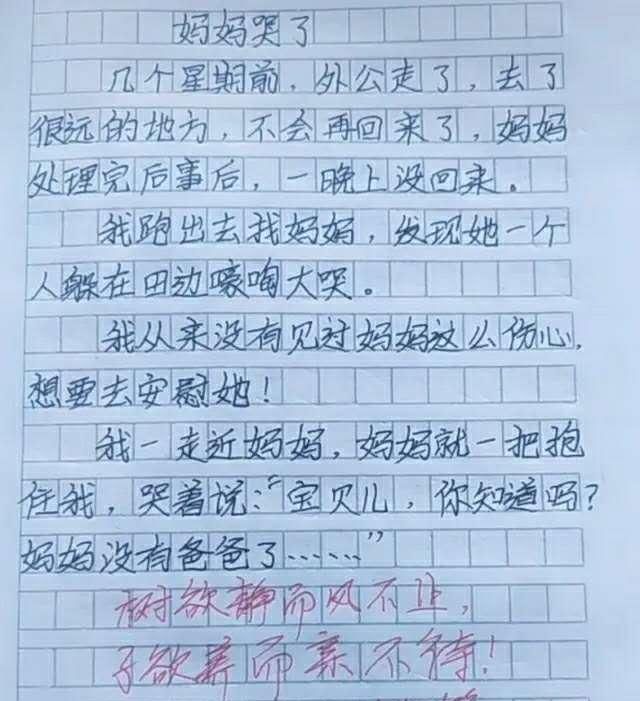 妈妈哭了
几个星期前，外公走了，去了
很远的地方，不会再回来了，妈妈
处理完后事后，一晚上没回来。
我跑出去找妈妈，发现她一个
人躲在田边嚎啕大哭。
我从来没有见过妈妈这么伤心，
想要去安慰她！
我一走近妈妈，妈妈就一把抱
住我，哭着说：“宝贝儿，你知道吗？
妈妈没有爸爸了……”
树欲静而风不止，
子欲养而亲不待！